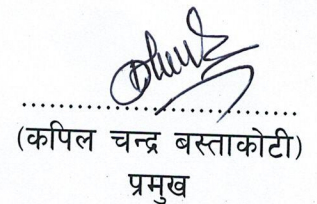 (कपिल चन्द्र बस्ताकोटी)
प्रमुख